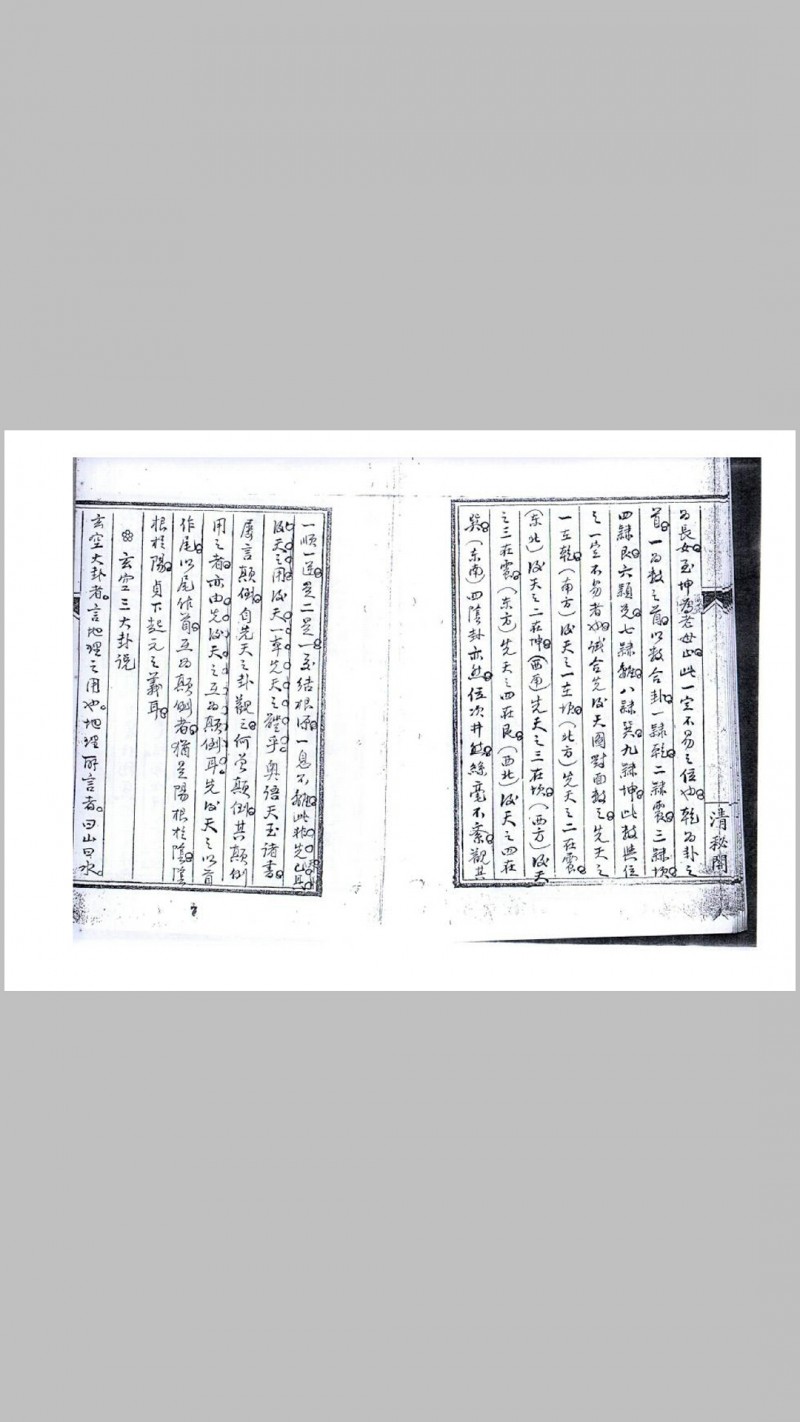 为長女至坤為老母止此一定不易之位也乾为卦之
首一为数之首以数合卦一隸乾二隸震三隸坎
四隸艮六隸兑七隸離八隸巽九隸坤此数與位
之一定不易者也試合先後天圖對面数之先天之
一在乾(南方)後天之一在坎(北方)先天之二在震
(东北)後天之二在坤(西南)先天之三在坎(西方)後天
之三在震(东方)先天之四在艮(西北)後天之四在
巽(东南)四陰卦亦然位次井然絲毫不紊觀其
清秘閣
一順一逆是二是一至結根源一息不離此非先天具
後天之用後天一本先天之體乎奥語天玉諸書
屢言顛倒自先天之卦觀之何曾顛倒其顛倒
用之者亦由先後天之互为顛倒耳先後天之以首
作尾以尾作首互为顛倒者猶是陽根於陰陰
根於陽貞下起元之義耳
玄空三大卦说
玄空大卦者言地理之用也地理所言者曰山曰水